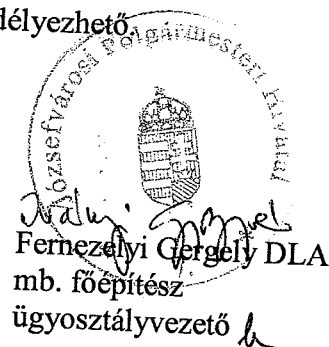 délyezhető.
Józsefvárosi Polgármesteri Hivatal
Fernezelyi Gergely DLA
mb. főépítész
ügyosztályvezető